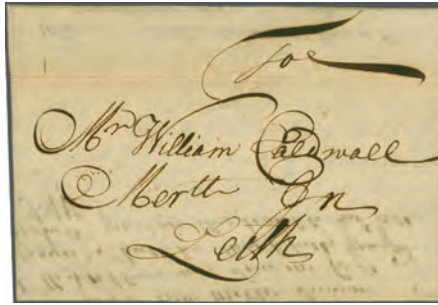 Toe
Mr William Caldwall
Mertt In
Leith